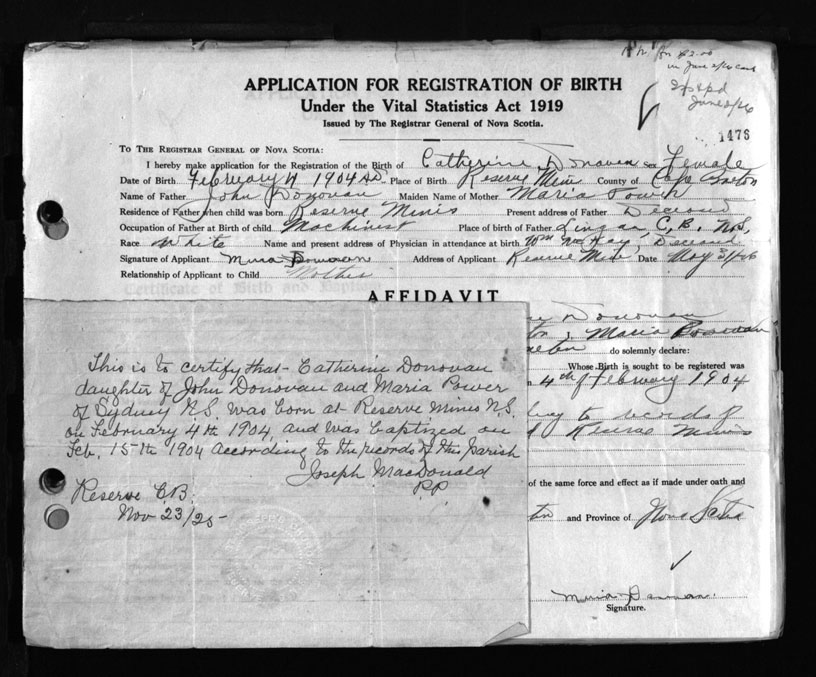 in June 2/26
June 2/26
1476
APPLICATION FOR REGISTRATION OF BIRTH
Under the Vital Statistics Act 1919
Issued by The Registrar General of Nova Scotia.
TO THE REGISTRAR GENERAL OF NOVA SCOTIA:
I hereby make application for the Registration of the Birth of Catherine Donovan Sex Female
Date of Birth February 4 1904 Place of Birth Reserve Mines County of Cape Breton
Name of Father John Donovan Maiden Name of Mother Maria Power
Residence of Father when child was born Reserve Mines Present address of Father Deceased
Occupation of Father at Birth of child Machinest Place of birth of Father Lingan C. B. N.S.
Race White Name and present address of Physician in attendance at birth Wm McKay, Deceased
Signature of Applicant Donovan Address of Applicant Reserve Mines Date May 31/26
Relationship of Applicant to Child Mother
AFFIDAVIT
Donovan
Maria Donovan
do solemnly declare:
Whose Birth is sought to be registered was
4th of February 1904
to records of
Reserve Mines
of the same force and effect as if made under oath and
and Province of Nova Scotia
Donovan
Signature.
This is to certify that Catherine Donovan
daughter of John Donovan and Maria Power
of Sydney N.S. was born at Reserve Mines N.S.
on February 4th 1904 and was Baptized on
Feb. 15th 1904 according to the records of this Parish
Joseph MacDonald
P.P.
Reserve C.B.
Nov 23/25